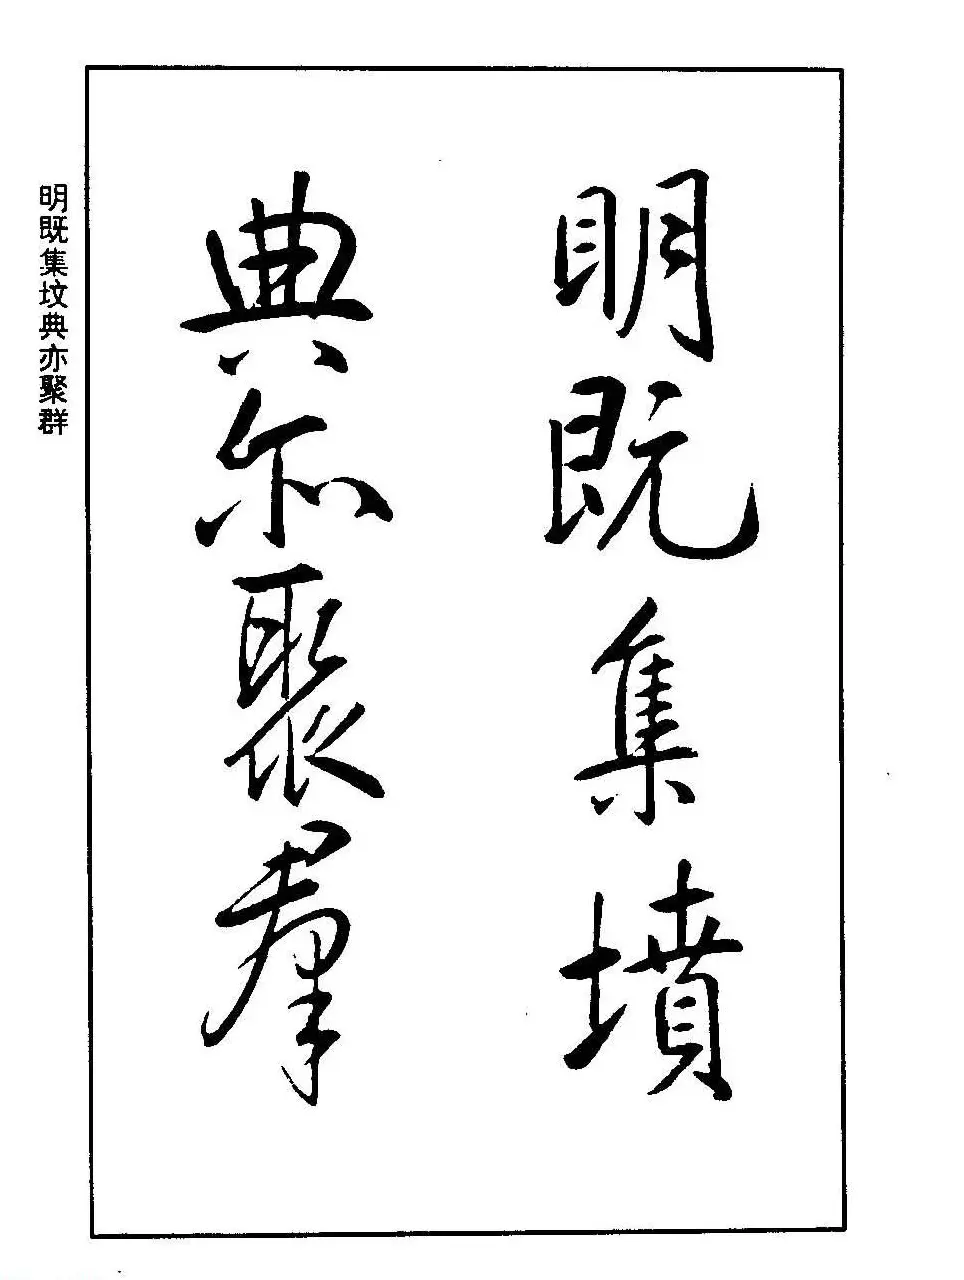 明既集墳
典亦聚羣
明既集坟典亦聚群